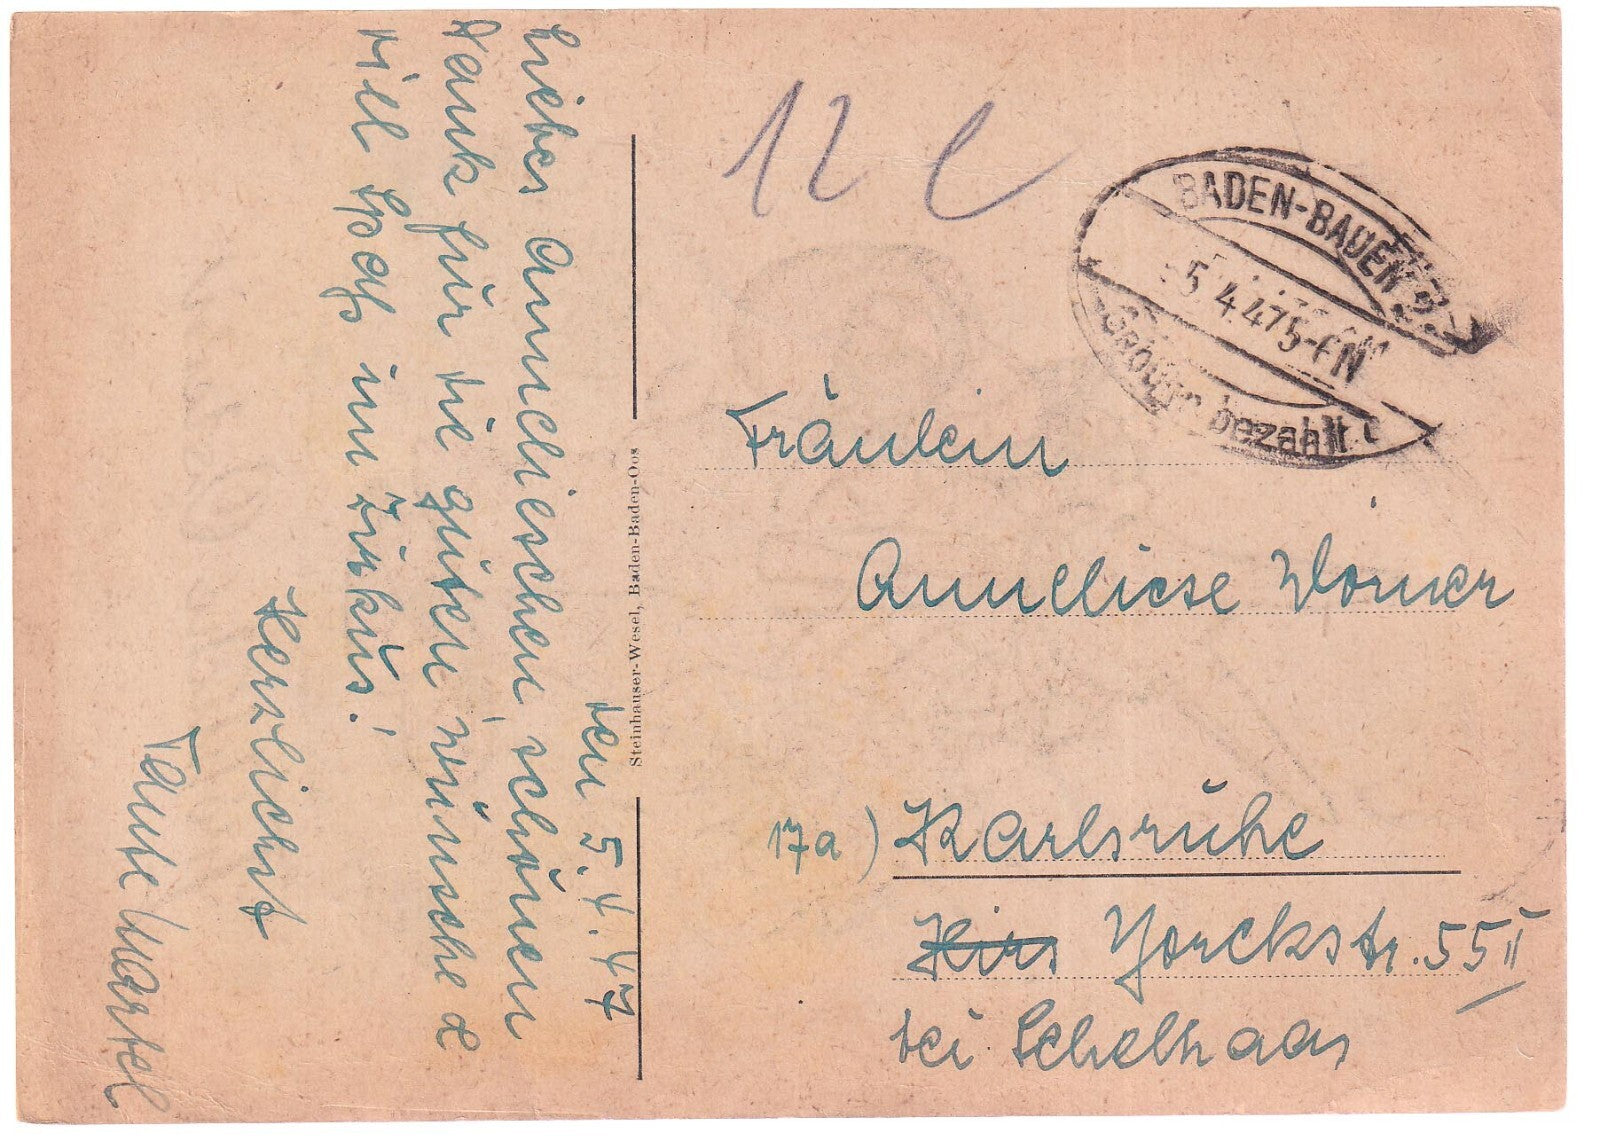 den 5.4.47
Liebes Annelieschen, schönen
Dank für die guten Wünsche &
viel Spaß im Zirkus!
Herzlichst
Tante
12
BADEN-BADEN 2
5.4.47 5-6N
Gebühr bezahlt
Steinhauser-Wesel, Baden-Baden-Oos
Fräulein
Anneliese Worner
17a) Karlsruhe
Hirs Yorckstr. 55 II
bei Schelhaas